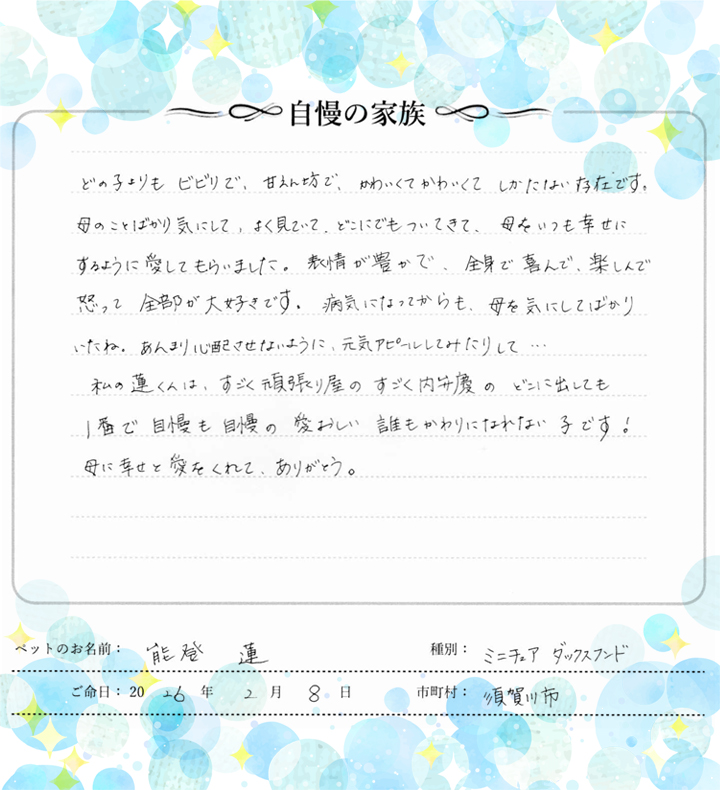 自慢の家族
どの子よりも ビビリで、甘えん坊で、かわいくてかわいくて しかたない存在です。
母のことばかり気にして、よく見ていて、どこにでもついてきて、 母をいつも幸せに
するように愛してもらいました。表情が豊かで、全身で喜んで、楽しんで
怒って 全部が大好きです。病気になってからも、母を気にしてばかり
いたね。あんまり心配させないように、元気アピールしてみたりして…
私の蓮くんは、すごく頑張り屋の すごく内弁慶の どこに出しても
1番で 自慢も自慢の 愛おしい 誰もかわりになれない 子です!
母に幸せと愛をくれて、ありがとう。
ペットのお名前: 能登 蓮 種別: ミニチュア ダックスフンド
ご命日: 20 26 年 2 月 8 日 市町村: 須賀川市